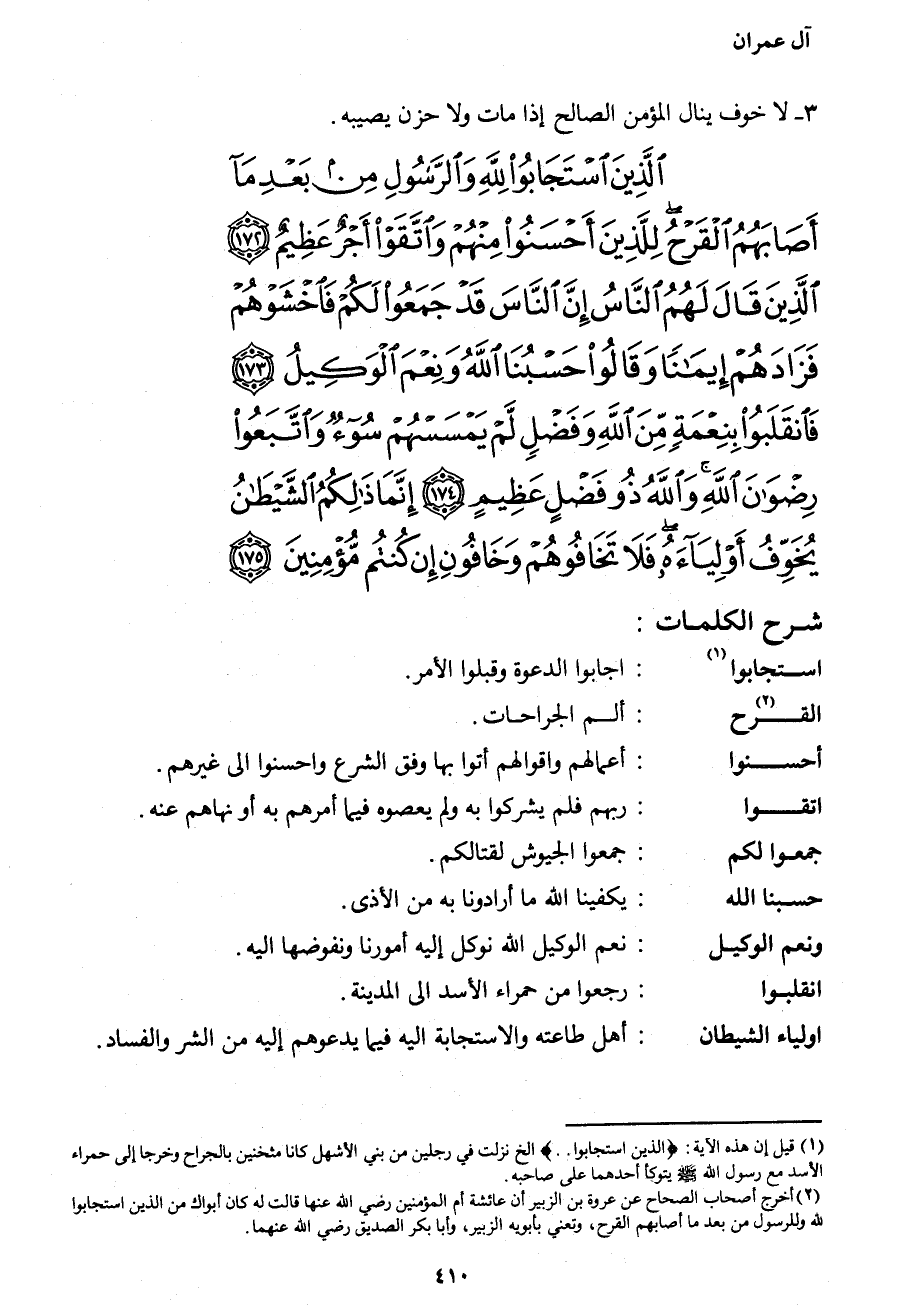 آل عمران
٣ـ لا خوف ينال المؤمن الصالح إذا مات ولا حزن يصيبه.
ٱلَّذِينَ ٱسْتَجَابُوا۟ لِلَّهِ وَٱلرَّسُولِ مِنۢ بَعْدِ مَآ
أَصَابَهُمُ ٱلْقَرْحُ ۚ لِلَّذِينَ أَحْسَنُوا۟ مِنْهُمْ وَٱتَّقَوْا۟ أَجْرٌ عَظِيمٌ ﴿١٧٢﴾
ٱلَّذِينَ قَالَ لَهُمُ ٱلنَّاسُ إِنَّ ٱلنَّاسَ قَدْ جَمَعُوا۟ لَكُمْ فَٱخْشَوْهُمْ
فَزَادَهُمْ إِيمَٰنًا وَقَالُوا۟ حَسْبُنَا ٱللَّهُ وَنِعْمَ ٱلْوَكِيلُ ﴿١٧٣﴾
فَٱنقَلَبُوا۟ بِنِعْمَةٍ مِّنَ ٱللَّهِ وَفَضْلٍ لَّمْ يَمْسَسْهُمْ سُوٓءٌ وَٱتَّبَعُوا۟
رِضْوَٰنَ ٱللَّهِ ۗ وَٱللَّهُ ذُو فَضْلٍ عَظِيمٍ ﴿١٧٤﴾ إِنَّمَا ذَٰلِكُمُ ٱلشَّيْطَٰنُ
يُخَوِّفُ أَوْلِيَآءَهُۥ ۖ فَلَا تَخَافُوهُمْ وَخَافُونِ إِن كُنتُم مُّؤْمِنِينَ ﴿١٧٥﴾
شرح الكلمات :
استجابوا(١) : اجابوا الدعوة وقبلوا الأمر.
القرح(٢) : ألم الجراحات.
أحسنوا : أعمالهم واقوالهم أتوا بها وفق الشرع واحسنوا الى غيرهم.
اتقوا : ربهم فلم يشركوا به ولم يعصوه فيما أمرهم به أو نهاهم عنه.
جمعوا لكم : جمعوا الجيوش لقتالكم.
حسبنا الله : يكفينا الله ما أرادونا به من الأذى.
ونعم الوكيل : نعم الوكيل الله نوكل إليه أمورنا ونفوضها اليه.
انقلبوا : رجعوا من حمراء الأسد الى المدينة.
اولياء الشيطان : أهل طاعته والاستجابة اليه فيما يدعوهم إليه من الشر والفساد.
(١) قيل إن هذه الآية: ﴿الذين استجابوا. .﴾ الخ نزلت في رجلين من بني الأشهل كانا مثخنين بالجراح وخرجا إلى حمراء
الأسد مع رسول الله ﷺ يتوكأ أحدهما على صاحبه.
(٢) أخرج أصحاب الصحاح عن عروة بن الزبير أن عائشة أم المؤمنين رضي الله عنها قالت له كان أبواك من الذين استجابوا
لله وللرسول من بعد ما أصابهم القرح، وتعني بأبويه الزبير، وأبا بكر الصديق رضي الله عنهما.
٤١٠